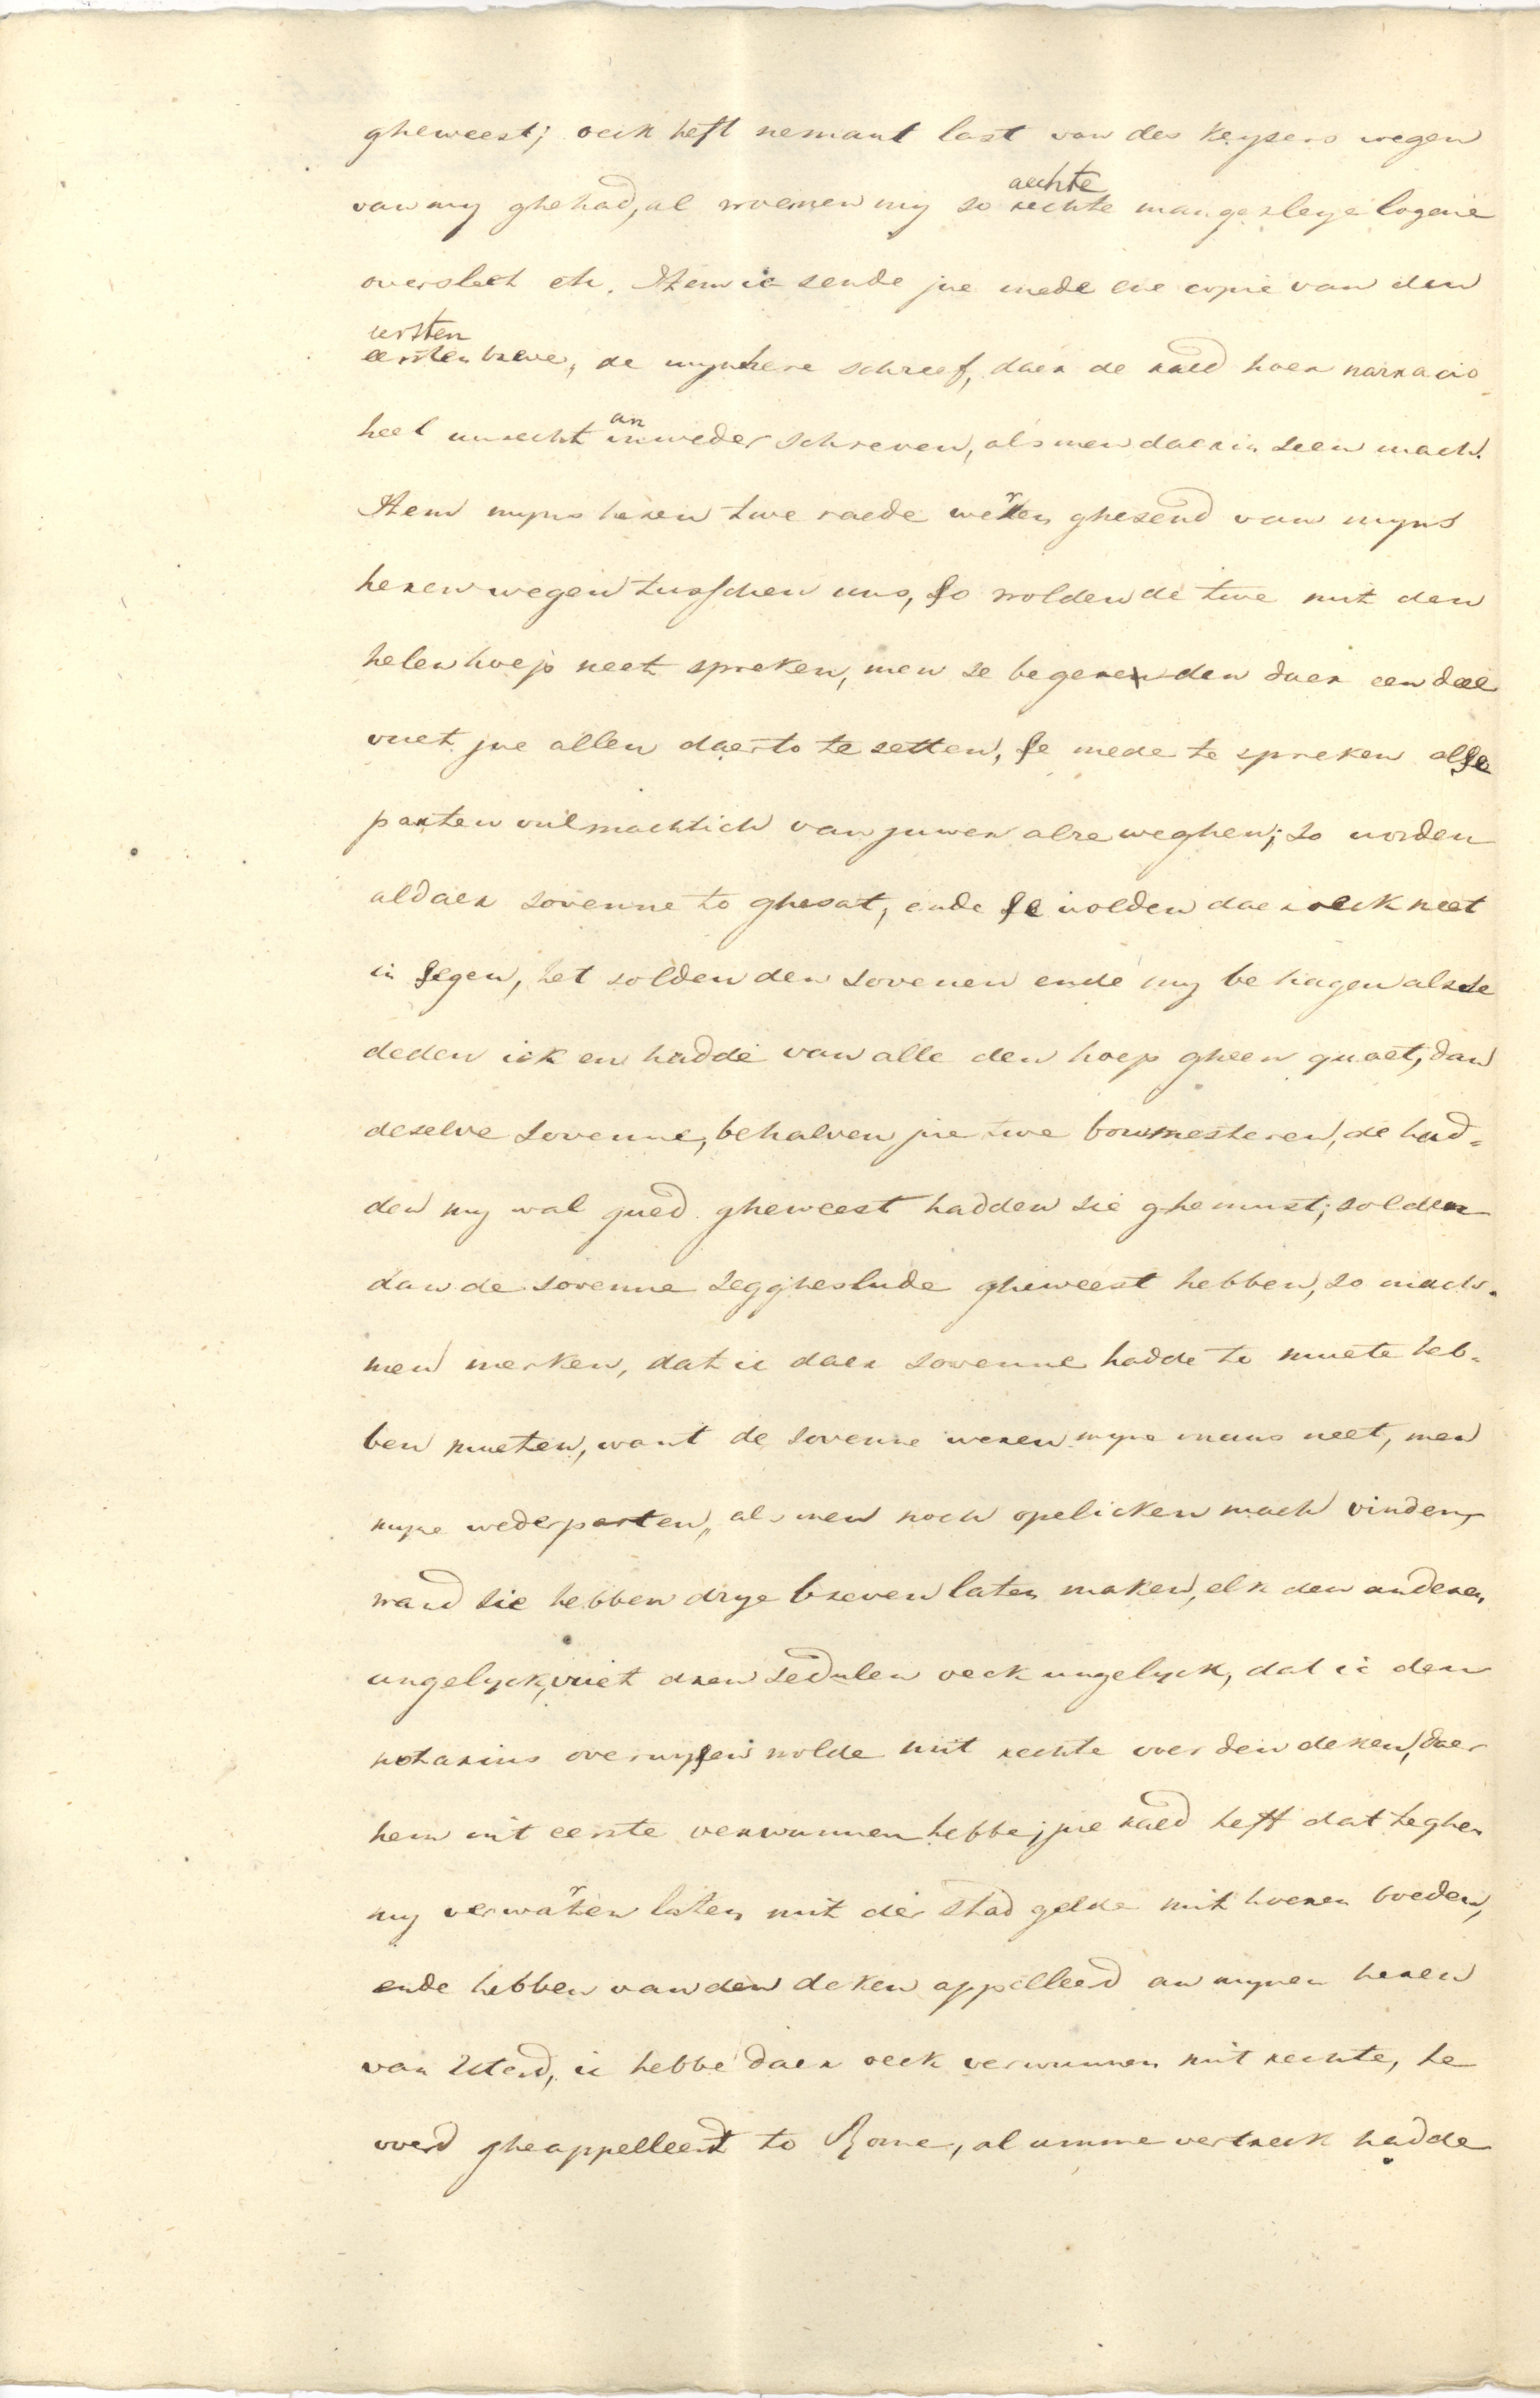 gheweest; oeck heft nemant last van des keysers wegen
van my ghehad, al woemen my so aechte
rechte mangerleye logene
overslect etc. Item ic sende jue mede ene copie van den
ursten
eersten breve, de mynhere schreef, daer de raed hoer narracio
heel unrecht an inweder schreven, als men daerin seen mach.
Item myns heren twe raede weren ghesend van myns
heren wegen tusschen uns, so wolden de twe mit den
helen hoep neet spreken, men se begereden daer een deel
vuet jue allen daerto te setten, se mede te spreken alse
parten vulmachtich van juwer alre weghen; so worden
aldaer sovenne to ghesat, ende se wolden daer oeck neet
in segen, het solden den sovenen ende my behagen als se
deden ick en hadde van alle den hoep gheen quaet, dan
deselve sovenne, behalven jue twe bowmesteren, de had-
den my wal gued gheweest hadden sie ghemust; solden
dan de sovenne seggheslude gheweest hebben, so mach-
men merken, dat ic daer sovenne hadde to muete heb-
ben mueten, want de sovenne weren myne mans neet, men
myne wederparten, als men noch opelicken mach vinden,
wand sie hebben drye breven laten maken, elk den anderen
ungelyck, vuet dren sedulen oeck ungelyck, dat ic den
notarius overwysen wolde mit rechte voer den deken, daer
hem mit eerste verwunnen hebbe; jue raed heft dat teghen
my verwaren laten mit der stad gelde mit hoeren boeden,
ende hebben van den deken appelleerd an mynen heren
van Uterd, ic hebbe daer oeck verwunnen mit rechte, he
woerd gheappelleert to Rome, al umme vertreck hadde